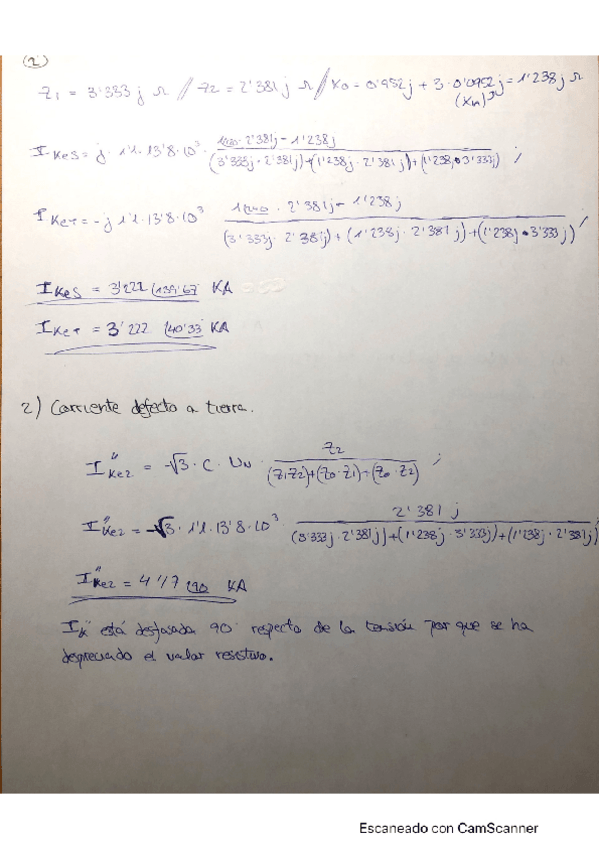 2
Z1 = 3'333 j Ω // Z2 = 2'381 j Ω // X0 = 0'952 j + 3 · 0'0952 j = 1'238 j Ω
(Xn)
IKeS = j · 1'1 · 13'8 · 10³ · 2'381 j - 1'238 j / (3'333 j · 2'381 j) + (1'238 j · 2'381 j) + (1'238 j · 3'333 j) ;
IKeT = -j 1'1 · 13'8 · 10³ · 2'381 j - 1'238 j / (3'333 j · 2'381 j) + (1'238 j · 2'381 j) + (1'238 j · 3'333 j) ;
IKeS = 3'222 ∠139'67 KA
IKeT = 3'222 ∠40'33 KA
2) Corriente defecto a tierra.
I"Ke2 = -√3 · C · Un · Z2 / (Z1 Z2) + (Z0 · Z1) + (Z0 · Z2) ;
I"Ke2 = -√3 · 1'1 · 13'8 · 10³ · 2'381 j / (3'333 j · 2'381 j) + (1'238 j · 3'333 j) + (1'238 j · 2'381 j)
I"Ke2 = 4'17 ∠90 KA
Ik" está desfasada 90° respecto de la tensión por que se ha
despreciado el valor resistivo.
Escaneado con CamScanner